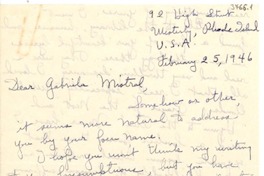 3966.1
92 High Street
Westerly, Rhode Island
U.S.A.
February 25, 1946
Dear Gabriela Mistral
Somehow or other,
it seems more natural to address
you by your full name.
I hope you won't think my writing
presumptuous, but you have